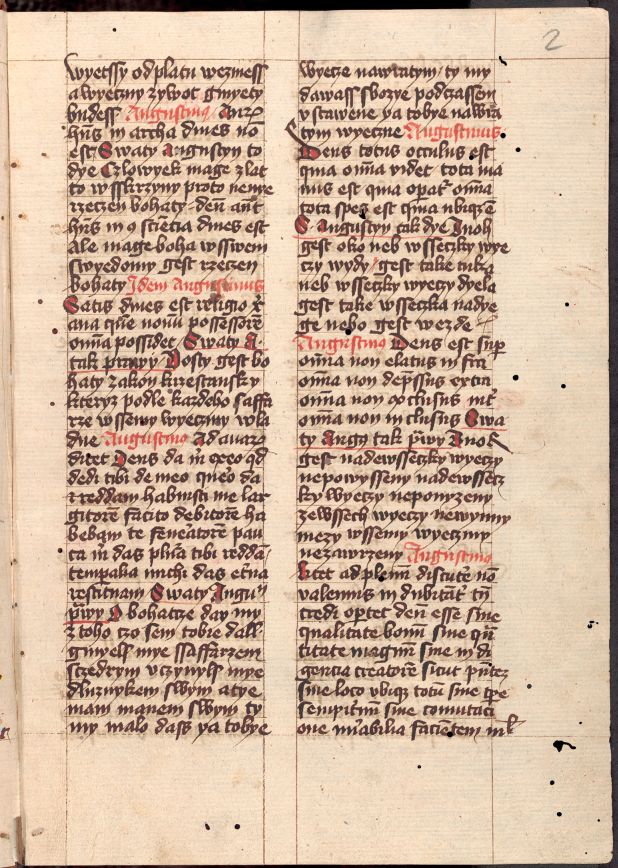 2
wyetssy odplatu wezmess
a wyeczny zywot gmyety
budess Augustinus Aur̃
hūs in archa dives nō
est Swaty Augustyn to
dye Czlowyek mage zlat
to w sskrzyny proto nenye
rzeczen bohaty. den̄ aūt
hn̄s in ɔsciēcia dives est
Ale mage boha w sswem
swyedomy gest rzeczen
bohaty Idem Augustinus
Satis dives est religio xr̄i
ana que nouū possessorē
om̄ia possidet Swaty A.
tak prawy Dosty gest bo
haty zakon krzestansky
kteryz podle kazdeho ssaffa
rze wssemy wyeczmy wla
dne Augustinus Ad auarū
dicet Deus da m̄ ex eo qd̄
dedi tibi de meo quero da
r reddam habuisti me lar
gitorē facito debitorē ha
bebam te feneratorē pau
ca m̄ das plūa tibi reddā
temp̄alia michi das et̄na
restituam Swaty Augu
p̄wy O bohatcze day my
z toho czo sem tobie dall
gmyelss mye ssaffarzem
sczedrym vczynyss mye
dluznykem swym a tye
mam manem swym ty
my malo dass ya tobye
wyecze nawratym ty my
dawass sbozye podczassem
vstawene ya tobye nawra
tym wyeczne Augustinus
Deus totus occulus est
quia om̄ia videt tota ma
nus est quia op̄at om̄ia
tota spes est quia ubiqȝ ē
S. Augustyn tak dye Buoh
gest oko neb wsseczky wye
czy wydy gest take ruka
neb wsseczky wyeczy dyela
gest take wsseczka nadye
ge nebo gest wezde
Augustinus Deus est sup̄
om̄ia non elatus inf̄ra
om̄ia non dep̄ssus extra
om̄ia non exclusus int̄
om̄ia non inclusus Swa
ty Augȝ tak p̄wy Buoh
gest nadewsseczky wyeczy
nepowysseny nadewssecz
ky wyeczy neponyzeny
ze wssech wyeczy newynny
mezy wssemy wyeczmy
nezawrzeny Augustinus
Licet ad plenū discutē nō
valeamus indubitāt̄ tn̄
credi oportet deū esse sine
qualitate bonū sine quā
titate magnū sine indi
gencia creatorē sicut p̄ntez
sine loco ubiqȝ totū sine tp̄e
sempit̄nū sine comutaci
one mutabilia facientem nl̄